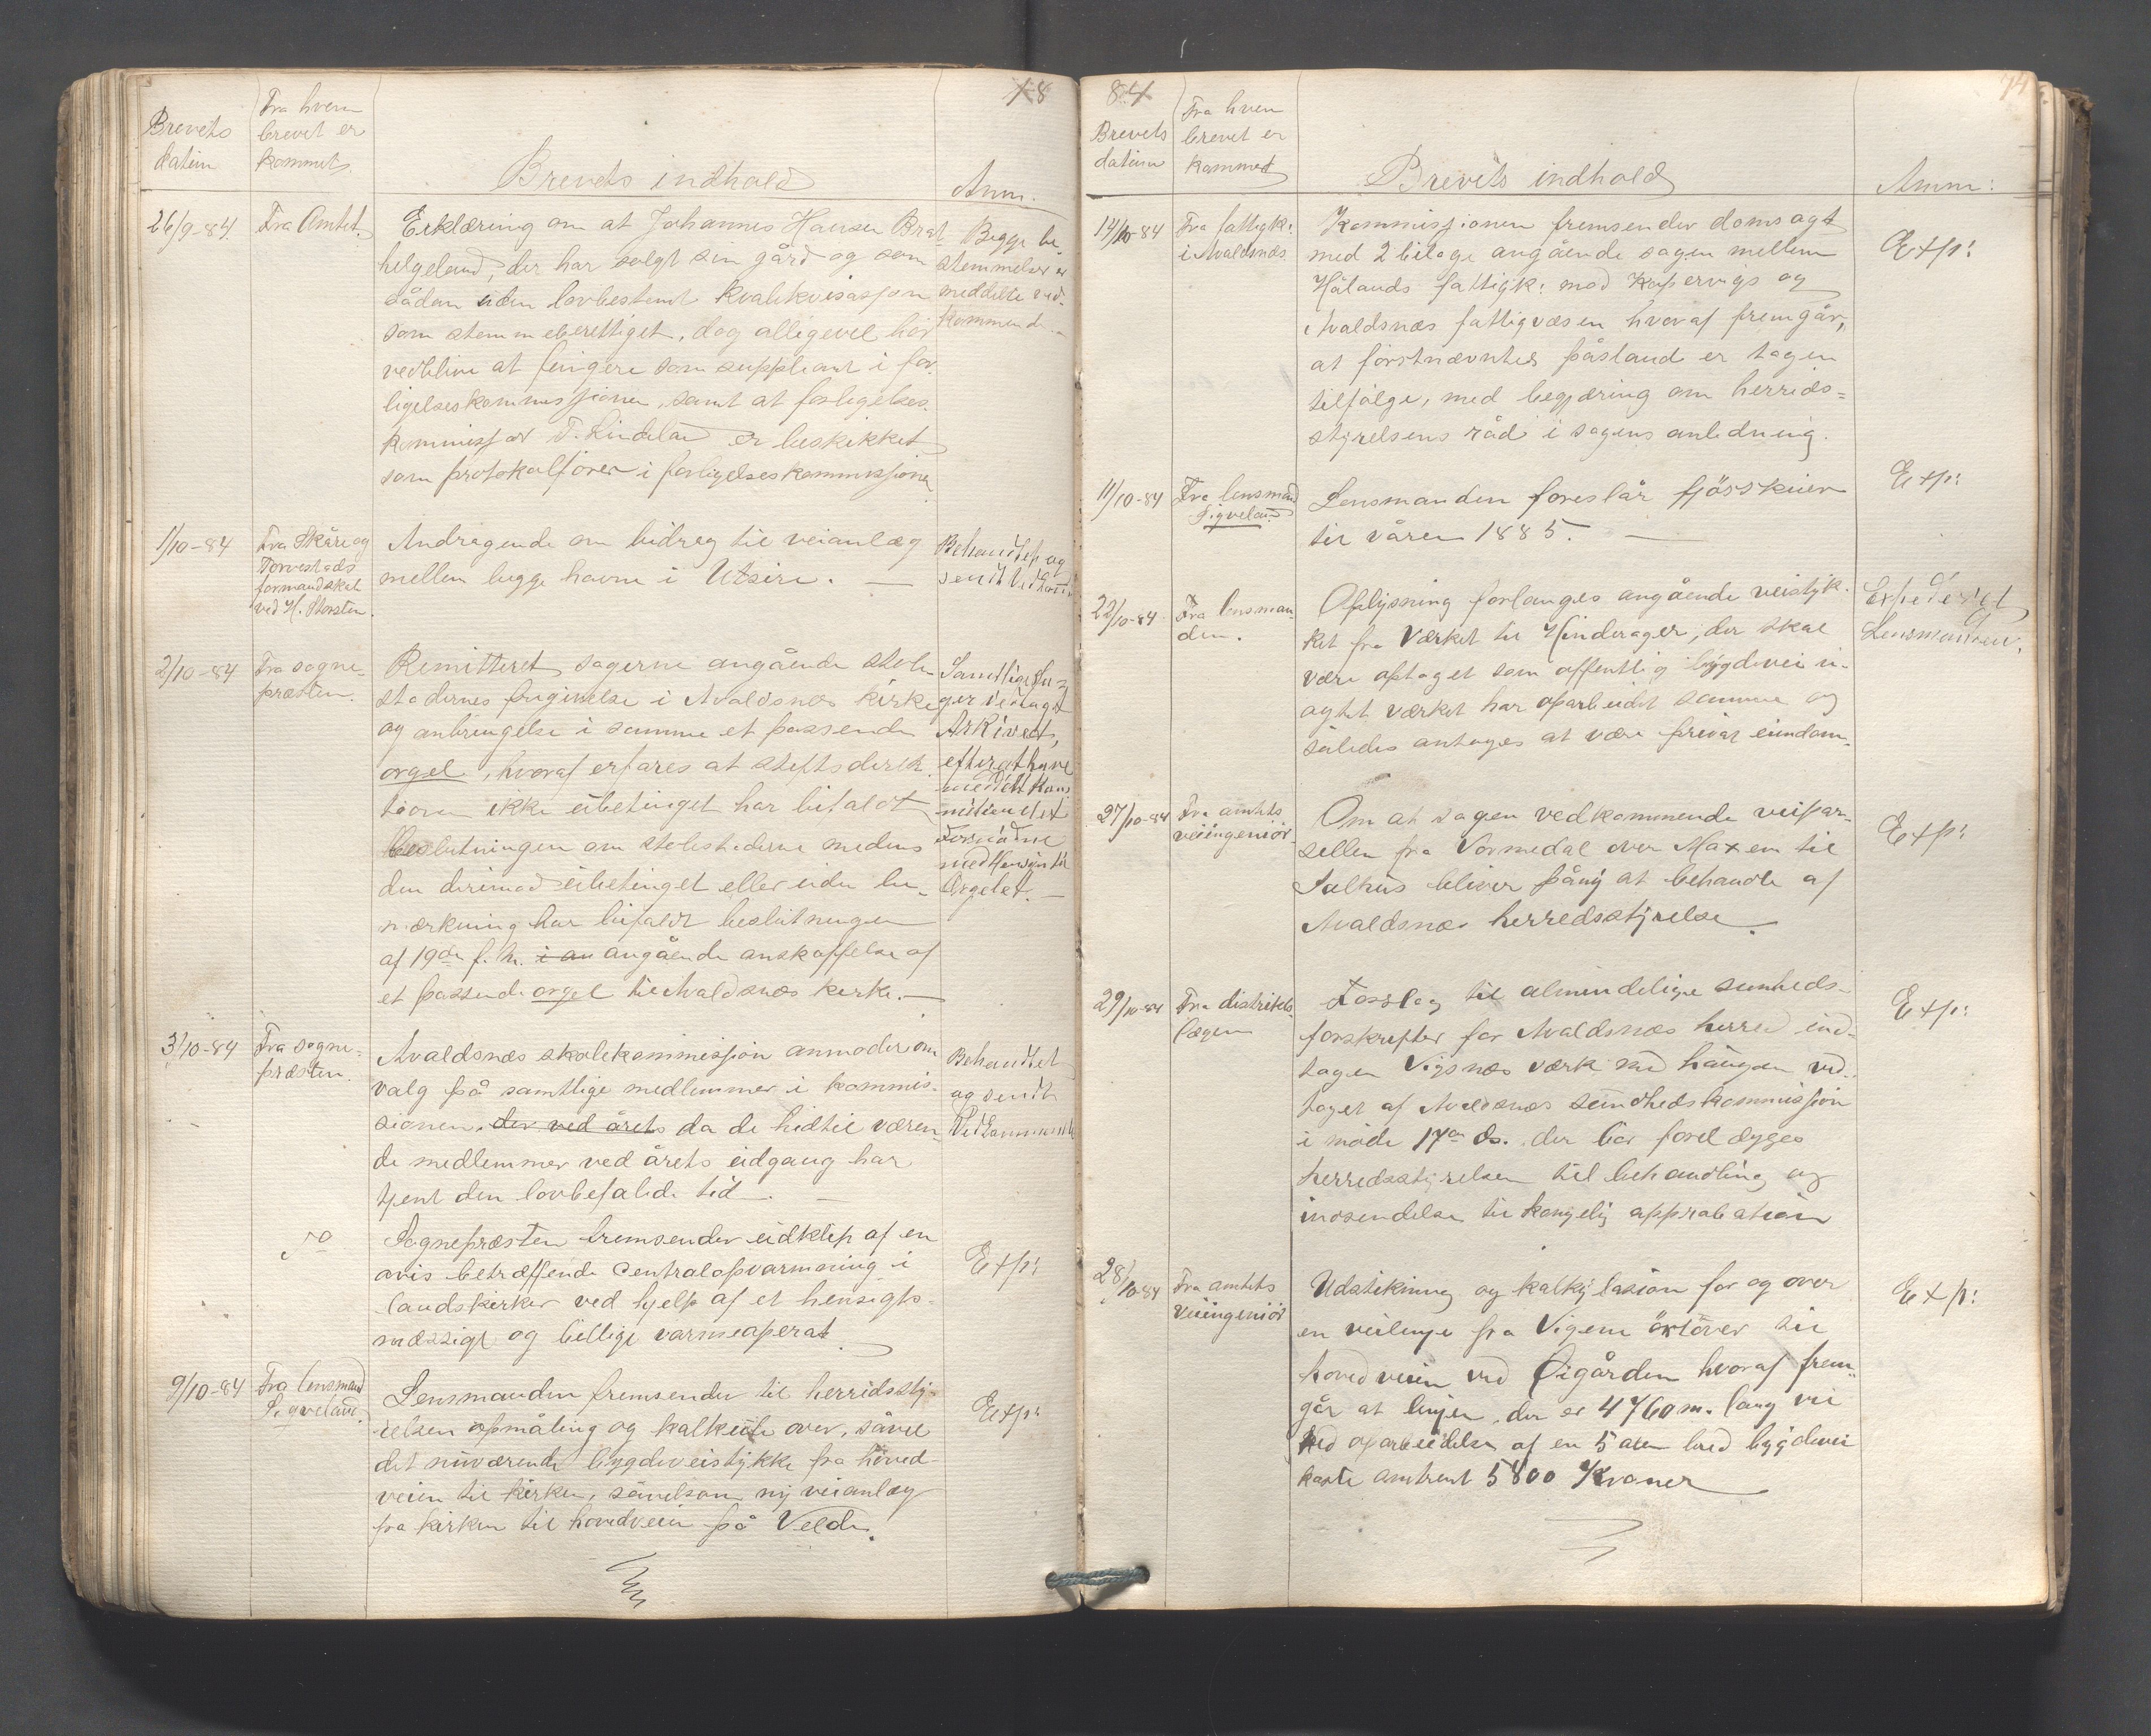 18
Brevets datum
Fra hvem brevet er kommet.
Brevets indhold
Anm.
26/9-84.
Fra Amtet.
Erklæring om at Johannes Hansen Brat-
helgeland, der har solgt sin gård og som
sådan uden lovbestemt kvalikvisasjon
som stemmeberettiget, dog alligevel bör
vedblive at fungere som suppleant i for-
ligelseskommissjonen, samt at forligelses-
kommissær T. Lindeland er beskikket
som protokolförer i forligelseskommissjonen.
Begge be
stemmelser er
meddelte ved-
kommende.
1/10-84
Fra Skåre og
Torvestads
formandskab
ved H. Storsten.
Andragende om bidrag til veianlæg
mellem begge havne i Utsire. —
Behandlet og
sendt
2/10-84
Fra sogne-
præsten.
Remitteret sagerne angående stole-
stadernes frigivelse i Avaldsnes kirke
og anbringelse i samme et passende
orgel, hvoraf erfares at stiftsdirek-
tionen ikke übetinget har bifaldt
beslutningen om stolestederne medens
den derimod übetinget eller uden be-
mærkning har bifaldt beslutningen
af 19de f. M. i an angående anskaffelse af
et passende orgel til Avaldsnæs kirke. —
Samtlige Sa-
ger vedtaget
Arkivets,
efter at have
meddelt Kom
mitien det
Fornödne
med Hensyn til
Orgelet. —
3/10-84
Fra sogne-
præsten.
Avaldsnæs skolekommissjon anmoder om
valg på samtlige medlemmer i kommis-
sionen, der ved årets da de hidtil væren-
de medlemmer ved årets udgang har
tjent den lovbefalede tid. —
Behandlet
og sendt
Do
Sognepræsten fremsender udklip af en
avis betræffende Centralopvarmning i
landskirker ved hjelp af et hensigts-
mæssigt og billigt varmeaperat.
Exp:
9/10-84
Fra lensmand
Sigveland.
Lensmanden fremsender til herredssty-
relsen opmåling og kalkule over, såvel
det nuværende bygdeveistykke fra hoved-
veien til kirken, såvelsom ny veianlæg
fra kirken til hovedveien på Velde.
Exp:
84
74
Brevets datum
Fra hvem brevet er kommet
Brevets indhold
Anm:
14/10-84
Fra fattigk:
i Avaldsnæs
Kommissjonen fremsender domsagt
med 2 bilage angående sagen mellem
Hålands fattigk: mod Kopervigs og
Avaldsnæs fattigvæsen hvoraf fremgår,
at förstnævntes påstand er tagen
tilfölge, med begjæring om herreds-
styrelsens råd i sagens anledning.
Exp:
11/10-84
Fra lensmand
Sigveland
Lensmanden foreslår fjösskuer
til våren 1885. —
Exp:
22/10-84
Fra lensman-
den.
Oplysning forlanges angående veistyk-
ket fra Værket til Hinderager, der skal
være optaget som offentlig bygdevei u-
agtet værket har oparbeidet samme og
således antages at være privat eiendom.
Expederet
Lensmanden.
27/10-84
Fra amtets
veiingeniör
Om at sagen vedkommende veipar-
sellen fra Vormedal over Maxen til
Salhus bliver påny at behandle af
Avaldsnæs herredsstyrelse.
Exp:
29/10-84
Fra distrikts-
lægen
Forslag til almindelige sunheds-
forskrifter for Avaldsnæs herred ind-
tagen Vigsnæs værk med havgen ved-
taget af Avaldsnæs sundhedskommissjon
i möde 17de ds. der bör forelægges
herredsstyrelsen til behandling og
indsendelse til kongelig approbation
Exp:
28/10-84
Fra amtets
Veiingeniör
Udstikning og kalkylasion for og over
en veilinje fra Vigene östover til
hovedveien ved Öigården hvoraf frem-
går at linjen, der er 4760 m. lang vil
ved oparbeidelse af en 5 alen bred bygdevei
koste omtrent 5800 Kroner
Exp: